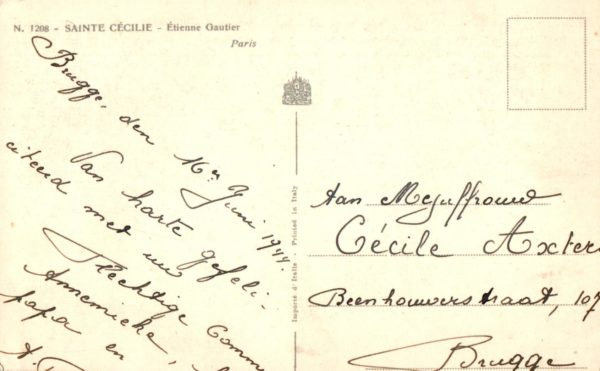 N. 1208 - SAINTE CÉCILIE - Étienne Gautier
Paris
Brugge, den 16en Juni 1944.
Van harte gefeli-
citeerd met uw
Plechtige Comm
Annemieke,
papa en
Importé d'Italie - Printed in Italy
Aan Mejuffrouw
Cécile Axters
Beenhouwerstraat, 107
Brugge